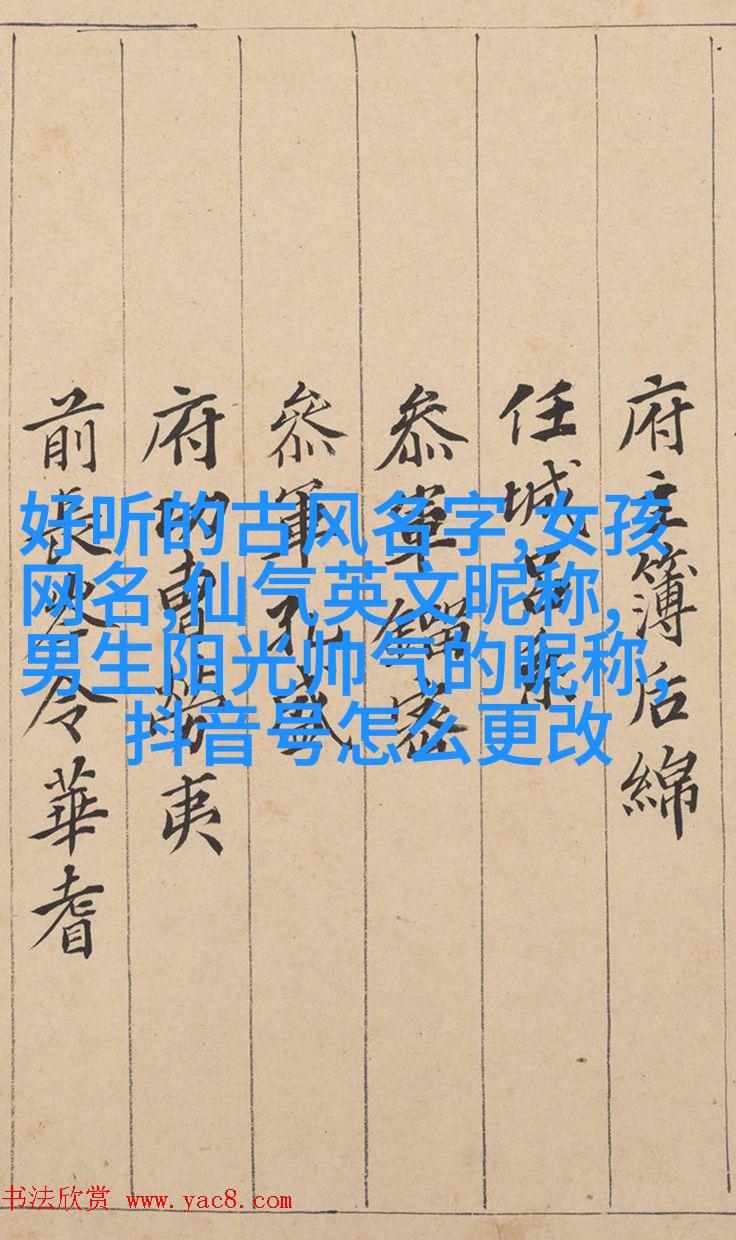 好听的古风名字,女孩
网名,仙气英文昵称,
男生阳光帅气的昵称,
抖音号怎么更改
府主簿后綿
任城呂系
叅軍密
叅軍孔盛
府功曹勞夷
前長岑令華耆
书法欣赏 www.yac8.com